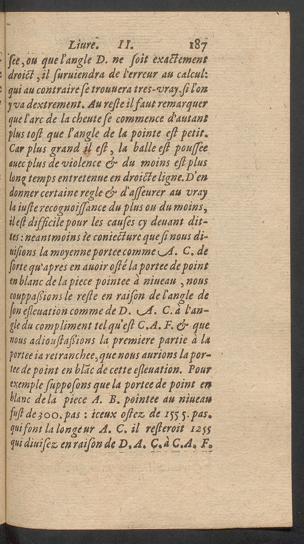 Liure. II. 187
see, ou que l'angle D. ne soit exactement
droict, il suruiendra de l'erreur au calcul:
qui au contraire se trouuera tres-vray, si l'on
y va dextrement. Au reste il faut remarquer
que l'arc de la cheute se commence d'autant
plus tost que l'angle de la pointe est petit.
Car plus grand il est, la balle est poussee
auec plus de violence & du moins est plus
long temps entretenue en droicte ligne. D'en
donner certaine regle & d'asseurer au vray
la iuste recognoissance du plus ou du moins,
il est difficile pour les causes cy deuant dit-
tes: neantmoins ie coniecture que si nous di-
uisions la moyenne portee comme A. C. de
sorte qu'apres en auoir osté la portee de point
en blanc de la piece pointee à niueau, nous
couppassions le reste en raison de l'angle de
son esleuation comme de D. A. C. à l'an-
gle du compliment tel qu'est C. A. F. & que
nous adioustassions la premiere partie à la
portee ia retranchee, que nous aurions la por-
tee de point en blãc de cette esleuation. Pour
exemple supposons que la portee de point en
blanc de la piece A. B. pointee au niueau
fust de 300. pas: iceux ostez de 1555. pas.
qui font la longeur A. C. il resteroit 1255
qui diuisez en raison de D. A. C. à C. A. F.